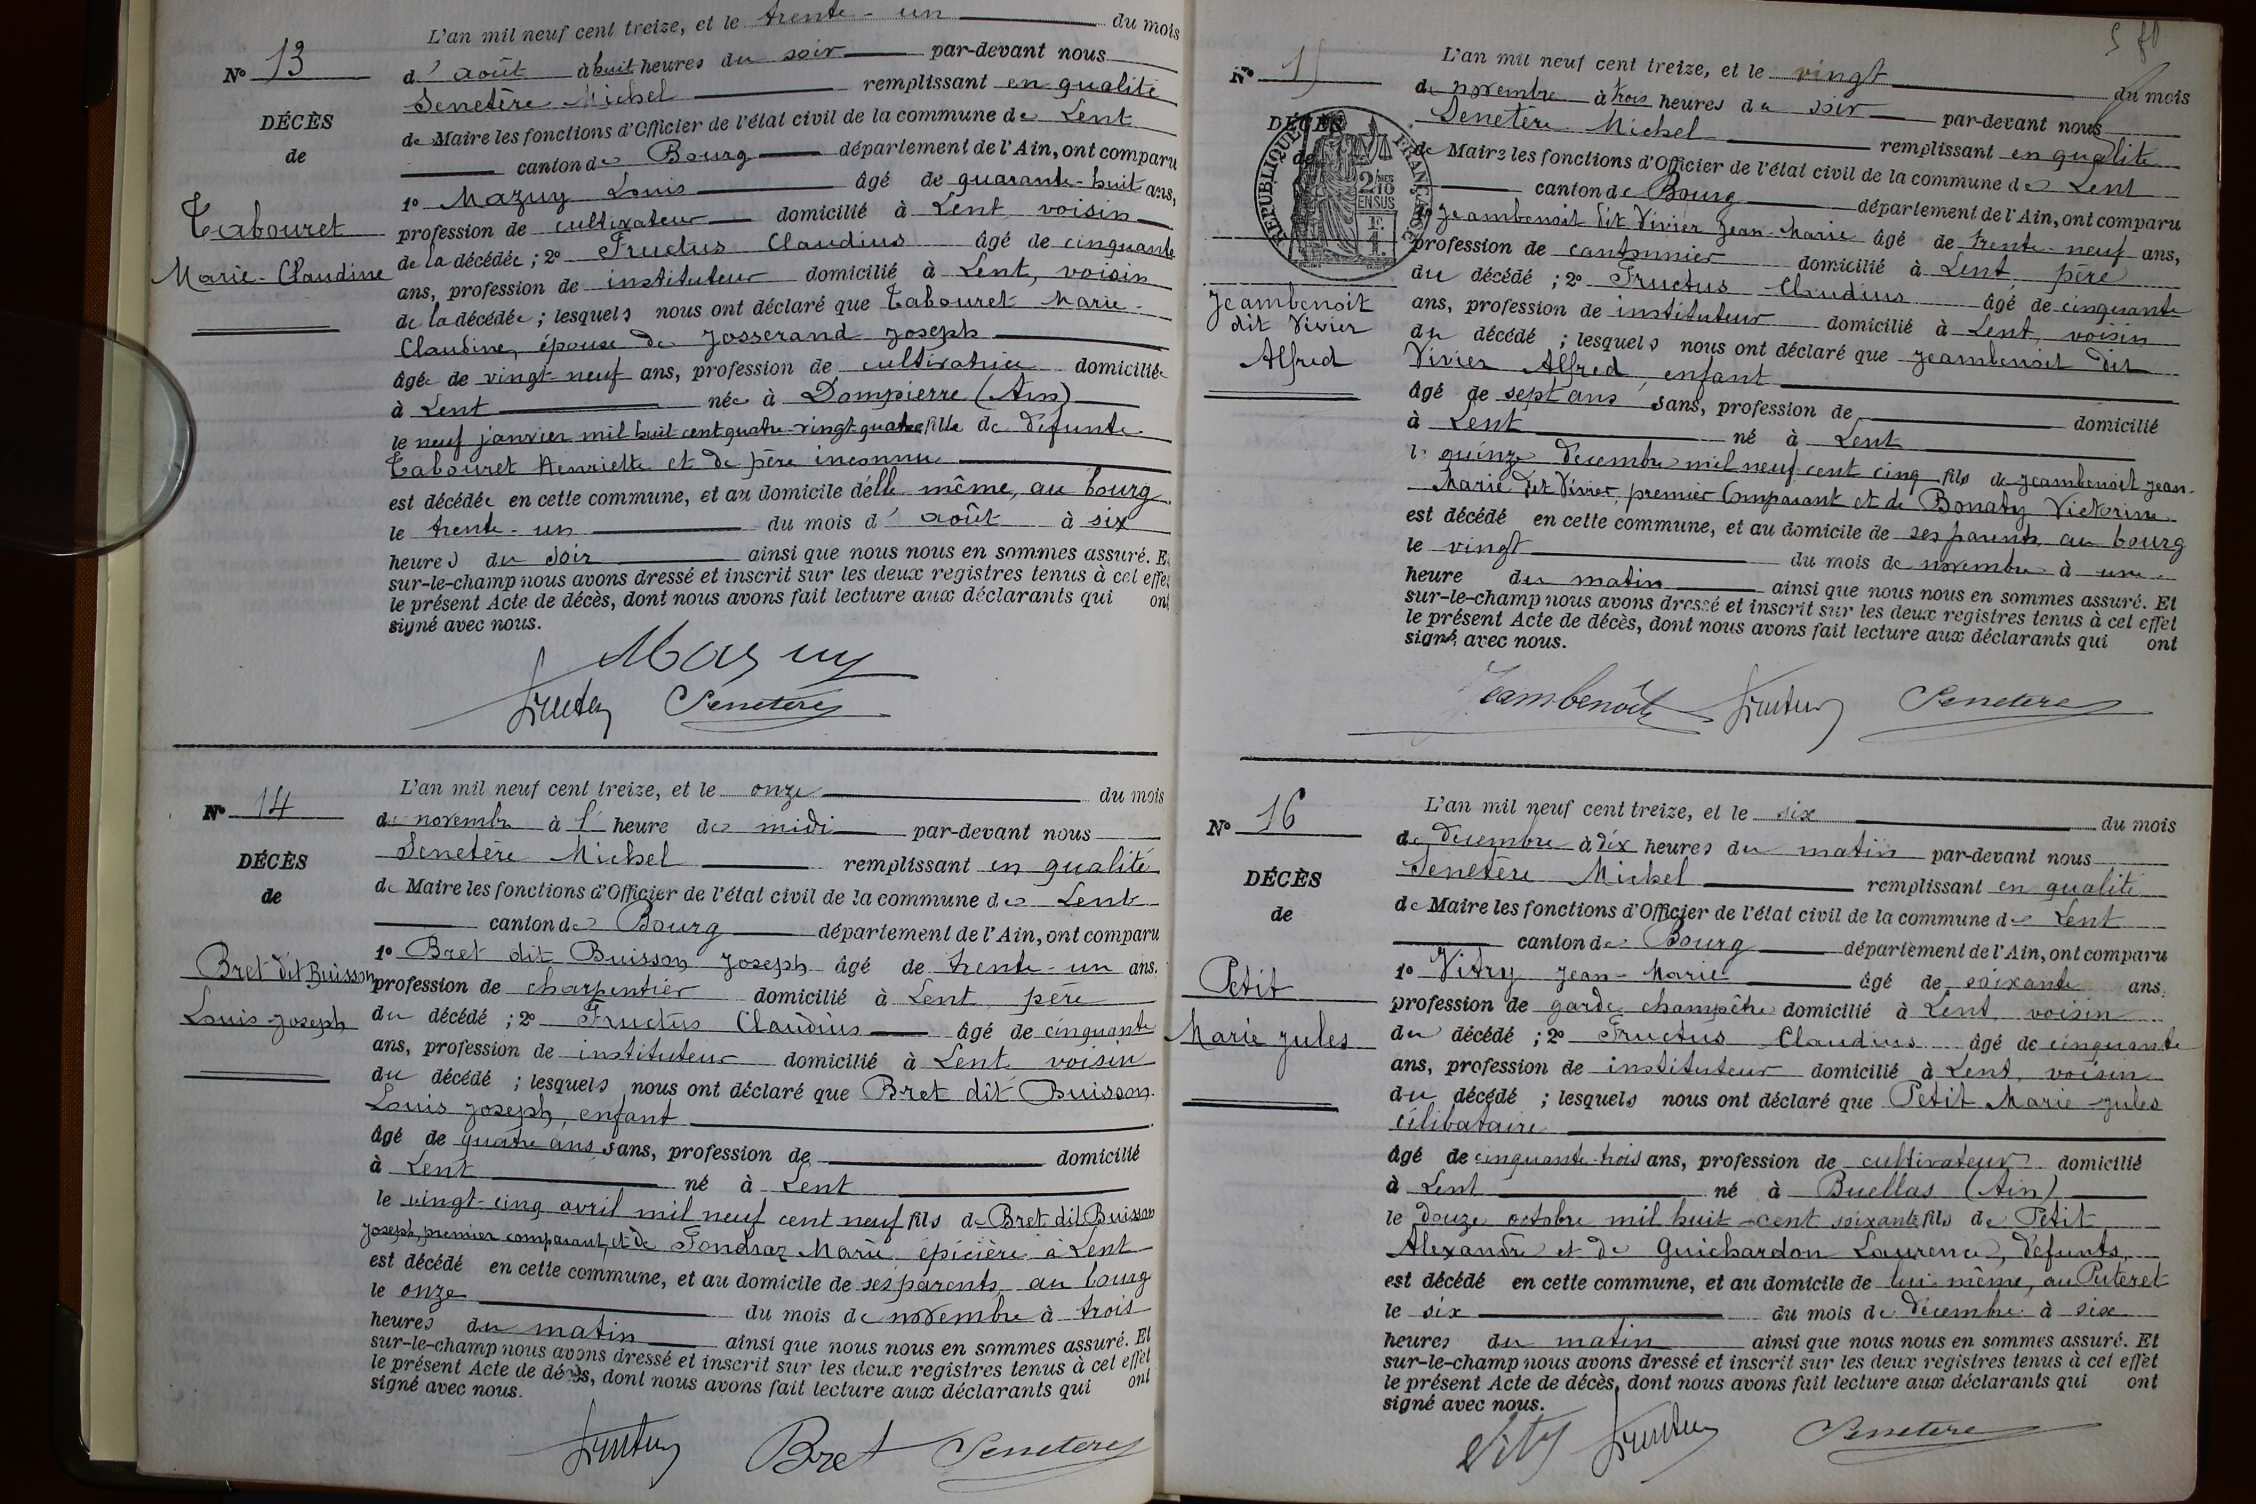 L'an mil neuf cent treize, et le trente-un du mois
d'août à huit heures du soir par-devant nous
Senetère Michel remplissant en qualité
de Maire les fonctions d'Officier de l'état civil de la commune de Lent
canton de Bourg département de l'Ain, ont comparu
1º Mazuy Louis âgé de quarante-huit ans,
profession de cultivateur domicilié à Lent, voisin
de la décédée ; 2º Fructus Claudius âgé de cinquante
ans, profession de instituteur domicilié à Lent, voisin
de la décédée ; lesquels nous ont déclaré que Tabouret Marie-
Claudine, épouse de Josserand Joseph
âgée de vingt-neuf ans, profession de cultivatrice domiciliée
à Lent née à Dompierre (Ain)
le neuf janvier mil huit cent quatre-vingt quatre fille de défunte
Tabouret Henriette et de père inconnu
est décédée en cette commune, et au domicile d'elle même, au bourg
le trente-un du mois d'août à six
heures du soir ainsi que nous nous en sommes assuré. Et
sur-le-champ nous avons dressé et inscrit sur les deux registres tenus à cet effet
le présent Acte de décès, dont nous avons fait lecture aux déclarants qui ont
signé avec nous.
Nº 13
DÉCÈS
de
Tabouret
Marie-Claudine
Mazuy
Fructus Senetère
L'an mil neuf cent treize, et le onze du mois
de novembre à l' heure de midi par-devant nous
Senetère Michel remplissant en qualité
de Maire les fonctions d'Officier de l'état civil de la commune de Lent
canton de Bourg département de l'Ain, ont comparu
1º Bret dit Buisson Joseph âgé de trente-un ans.
profession de charpentier domicilié à Lent, père
du décédé ; 2º Fructus Claudius âgé de cinquante
ans, profession de instituteur domicilié à Lent, voisin
du décédé ; lesquels nous ont déclaré que Bret dit Buisson
Louis Joseph, enfant
âgé de quatre ans sans, profession de domicilié
à Lent né à Lent
le vingt-cinq avril mil neuf cent neuf fils de Bret dit Buisson
Joseph, premier comparant, et de Fondraz Marie, épicière à Lent
est décédé en cette commune, et au domicile de ses parents, au bourg
le onze du mois de novembre à trois
heures du matin ainsi que nous nous en sommes assuré. Et
sur-le-champ nous avons dressé et inscrit sur les deux registres tenus à cet effet
le présent Acte de décès, dont nous avons fait lecture aux déclarants qui ont
signé avec nous.
Nº 14
DÉCÈS
de
Bret dit Buisson
Louis Joseph
Fructus Bret Senetère
L'an mil neuf cent treize, et le vingt du mois
de novembre à trois heures du soir par-devant nous
Senetère Michel remplissant en qualité
de Maire les fonctions d'Officier de l'état civil de la commune de Lent
canton de Bourg département de l'Ain, ont comparu
1º Jeambenoit dit Vivier Jean-Marie âgé de trente-neuf ans,
profession de cantonnier domicilié à Lent, père
du décédé ; 2º Fructus Claudius âgé de cinquante
ans, profession de instituteur domicilié à Lent, voisin
du décédé ; lesquels nous ont déclaré que Jeambenoit dit
Vivier Alfred, enfant
âgé de sept ans sans, profession de domicilié
à Lent né à Lent
le quinze décembre mil neuf cent cinq fils de Jeambenoit Jean-
Marie dit Vivier, premier comparant et de Bonaty Victorine
est décédé en cette commune, et au domicile de ses parents, au bourg
le vingt du mois de novembre à une
heure du matin ainsi que nous nous en sommes assuré. Et
sur-le-champ nous avons dressé et inscrit sur les deux registres tenus à cet effet
le présent Acte de décès, dont nous avons fait lecture aux déclarants qui ont
signé avec nous.
Nº 15
DÉCÈS
de
RÉPUBLIQUE FRANÇAISE
2/10 EN SUS
1F.
Jeambenoit
dit Vivier
Alfred
Jeambenoît Fructus Senetère
L'an mil neuf cent treize, et le six du mois
de décembre à dix heures du matin par-devant nous
Senetère Michel remplissant en qualité
de Maire les fonctions d'Officier de l'état civil de la commune de Lent
canton de Bourg département de l'Ain, ont comparu
1º Vitry Jean-Marie âgé de soixante ans,
profession de garde champêtre domicilié à Lent, voisin
du décédé ; 2º Fructus Claudius âgé de cinquante
ans, profession de instituteur domicilié à Lent, voisin
du décédé ; lesquels nous ont déclaré que Petit Marie Jules
célibataire
âgé de cinquante-trois ans, profession de cultivateur domicilié
à Lent né à Buellas (Ain)
le douze octobre mil huit-cent soixante fils de Petit
Alexandre et de Guichardon Laurence, défunts,
est décédé en cette commune, et au domicile de lui-même, au Puteret
le six du mois de décembre à six
heures du matin ainsi que nous nous en sommes assuré. Et
sur-le-champ nous avons dressé et inscrit sur les deux registres tenus à cet effet
le présent Acte de décès, dont nous avons fait lecture aux déclarants qui ont
signé avec nous.
Nº 16
DÉCÈS
de
Petit
Marie Jules
Vitry Fructus Senetère